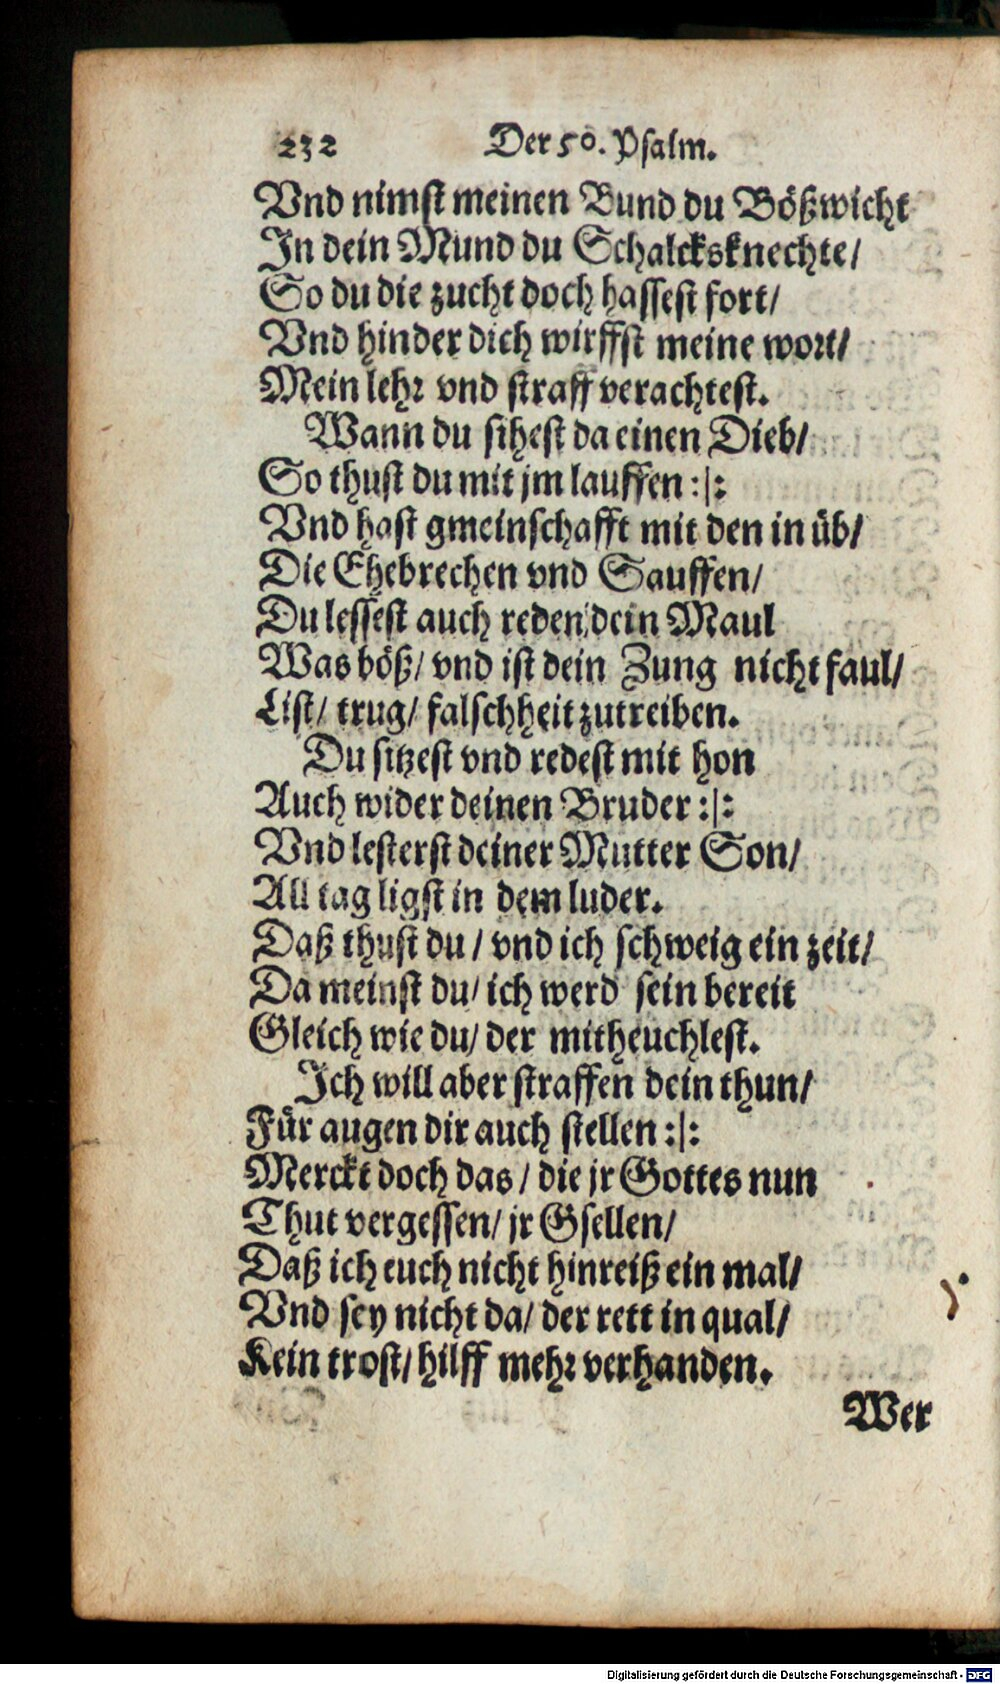 232 Der 50. Psalm.
Vnd nimst meinen Bund du Bößwicht
In dein Mund du Schalcksknechte/
So du die zucht doch hassest fort/
Vnd hinder dich wirffst meine wort/
Mein lehr vnd straff verachtest.
Wann du sihest da einen Dieb/
So thust du mit jm lauffen :|:
Vnd hast gmeinschafft mit den in üb/
Die Ehebrechen vnd Sauffen/
Du lessest auch reden dein Maul
Was böß/ vnd ist dein Zung nicht faul/
List/ trug/ falschheit zutreiben.
Du sitzest vnd redest mit hon
Auch wider deinen Bruder :|:
Vnd lesterst deiner Mutter Son/
All tag ligst in dem luder.
Daß thust du/ vnd ich schweig ein zeit/
Da meinst du/ ich werd sein bereit
Gleich wie du/ der mitheuchlest.
Ich will aber straffen dein thun/
Für augen dir auch stellen :|:
Merckt doch das/ die jr Gottes nun
Thut vergessen/ jr Gsellen/
Daß ich euch nicht hinreiß ein mal/
Vnd sey nicht da/ der rett in qual/
Kein trost/ hilff mehr verhanden.
Wer
Digitalisierung gefördert durch die Deutsche Forschungsgemeinschaft - DFG